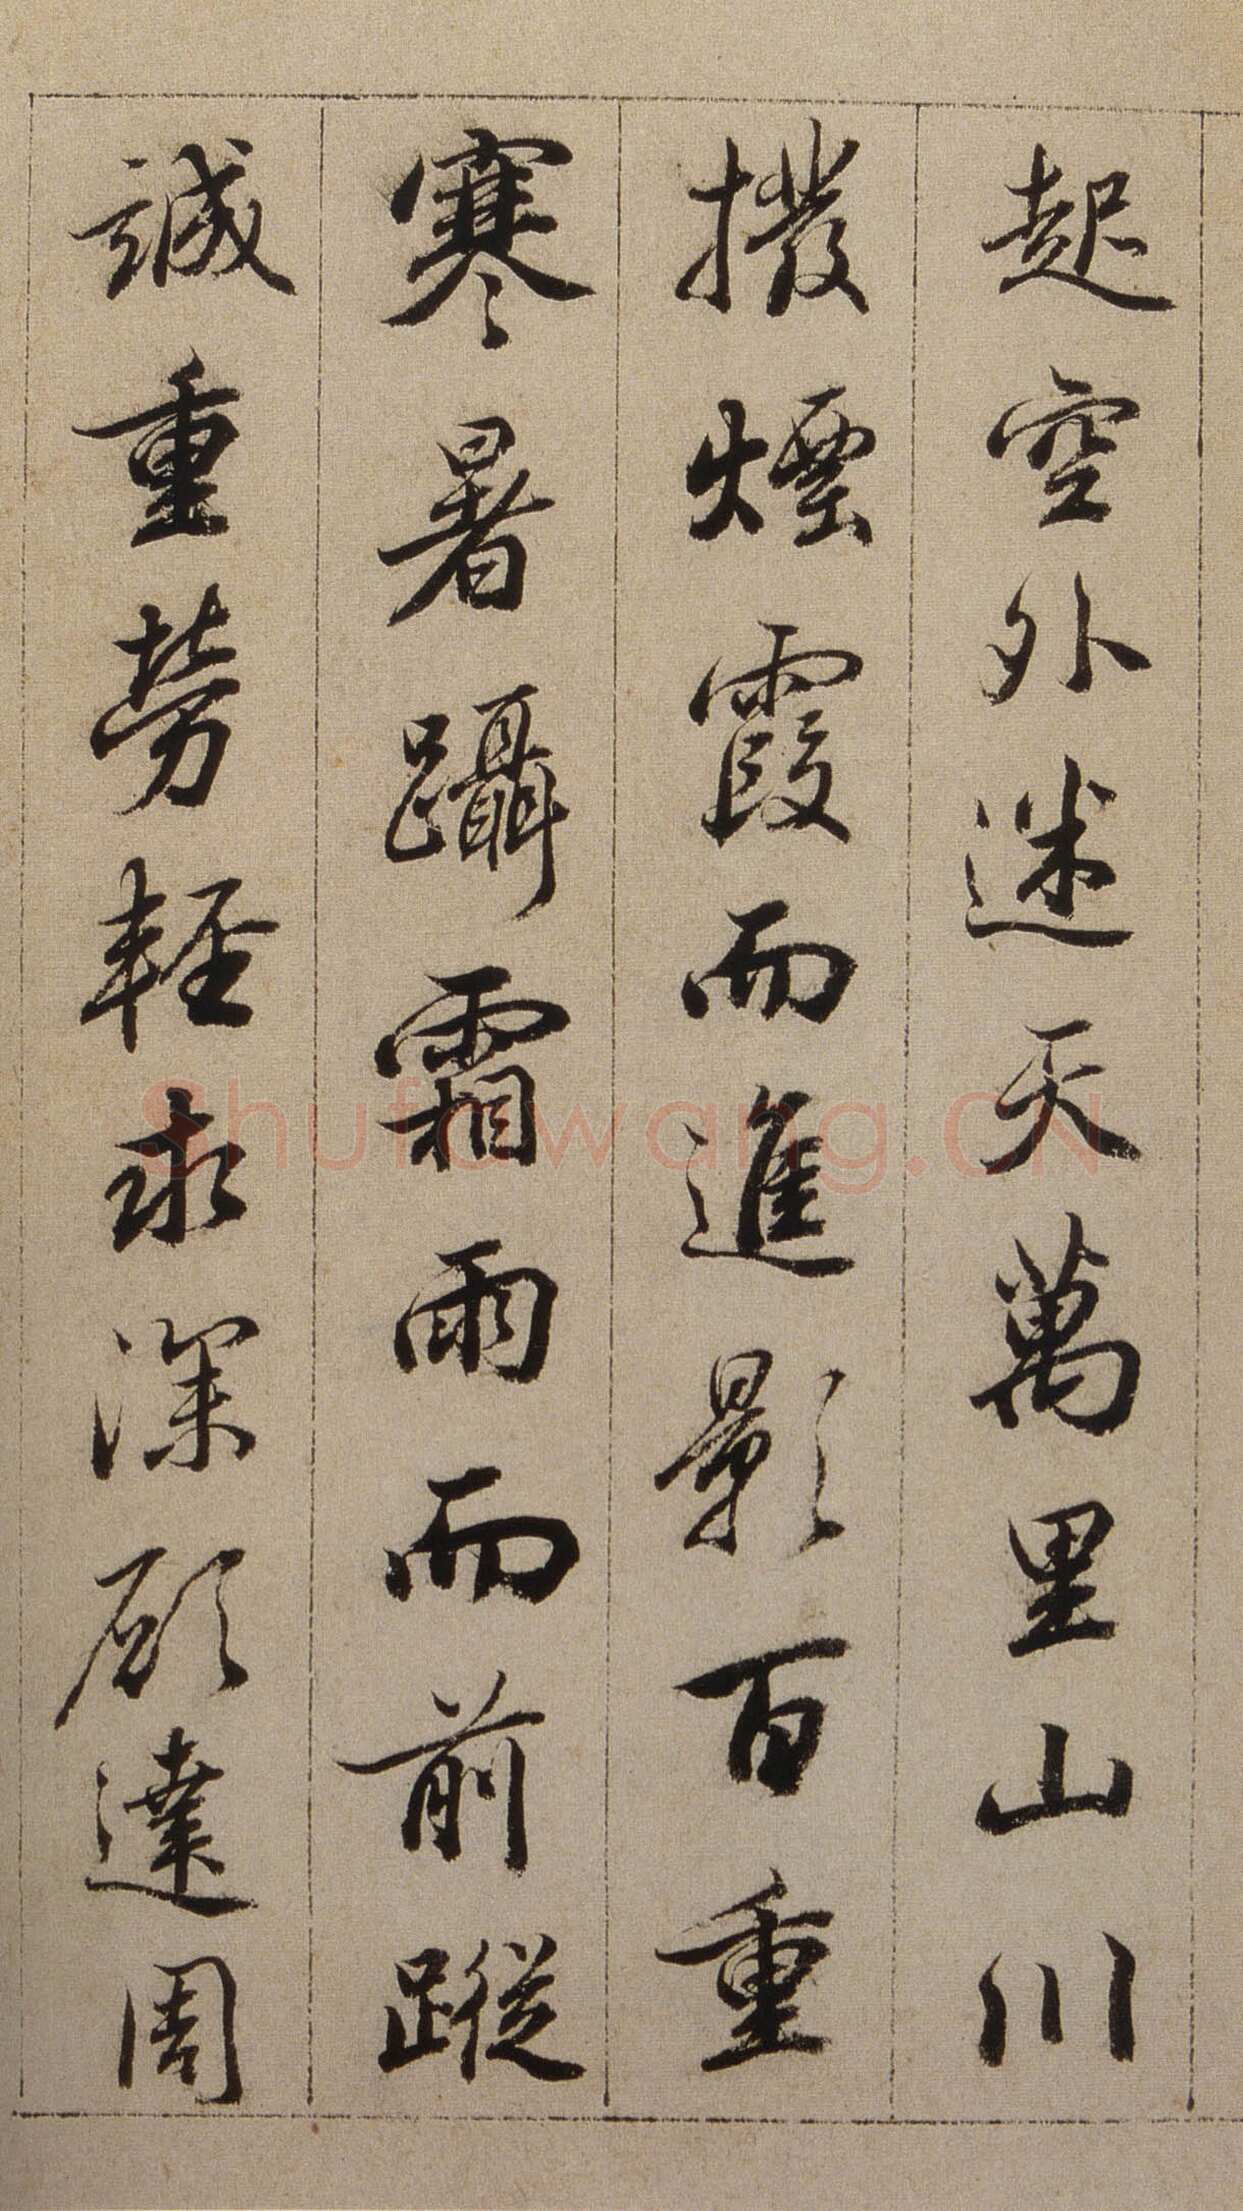 起空外迷天萬里山川
撥煙霞而進影百重
寒暑躡霜雨而前蹤
誠重勞輕求深願達周
Shufawang.CN